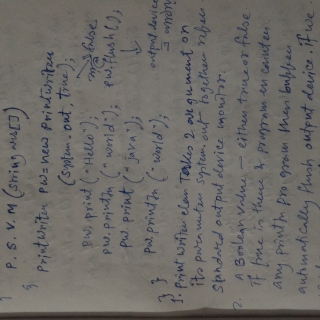 P. S. V. M (String args[])
{
PrintWriter pw = new PrintWriter
(System.out, true);
pw.print("Hello");
false
pw.println("world");
pw.flush();
pw.print("java");
pw.println("world");
output device
}
}
1. PrintWriter class takes 2 argument on
its parameter system.out together refers
standard output device monitor.
2. a Boolean value - either true or false
if true is there & program encounters
any println program then buffer
automatically flush output device if we